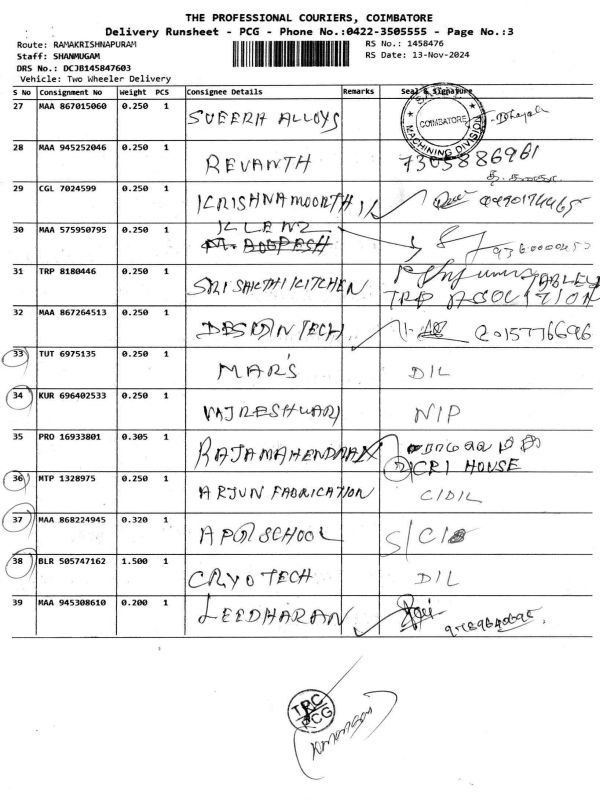 THE PROFESSIONAL COURIERS, COIMBATORE
Delivery Runsheet - PCG - Phone No.:0422-3505555 - Page No.:3
Route: RAMAKRISHNAPURAM
RS No.: 1458476
Staff: SHANMUGAM
RS Date: 13-Nov-2024
DRS No.: DCJB145847603
Vehicle: Two Wheeler Delivery
S No Consignment No Weight PCS Consignee Details Remarks Seal & Signature
27 MAA 867015060 0.250 1 ALLOYS
COIMBATORE
MACHINING DIVISION
28 MAA 945252046 0.250 1 REVANTH 7305886961
29 CGL 7024599 0.250 1 KRISHNAMOORTHI
30 MAA 575950795 0.250 1 KLENZ
31 TRP 8180446 0.250 1 SRI SHKTHI KITCHEN
32 MAA 867264513 0.250 1 TECH
33 TUT 6975135 0.250 1 MAR'S D/L
34 KUR 696402533 0.250 1 N/P
35 PRO 16933801 0.305 1 RAJAMAHENDRAN
CRI HOUSE
36 MTP 1328975 0.250 1 ARJUN FABRICATION C/D/L
37 MAA 868224945 0.320 1 SCHOOL
38 BLR 505747162 1.500 1 CRYO TECH D/L
39 MAA 945308610 0.200 1 LEEDHARAN
TRC
PCG